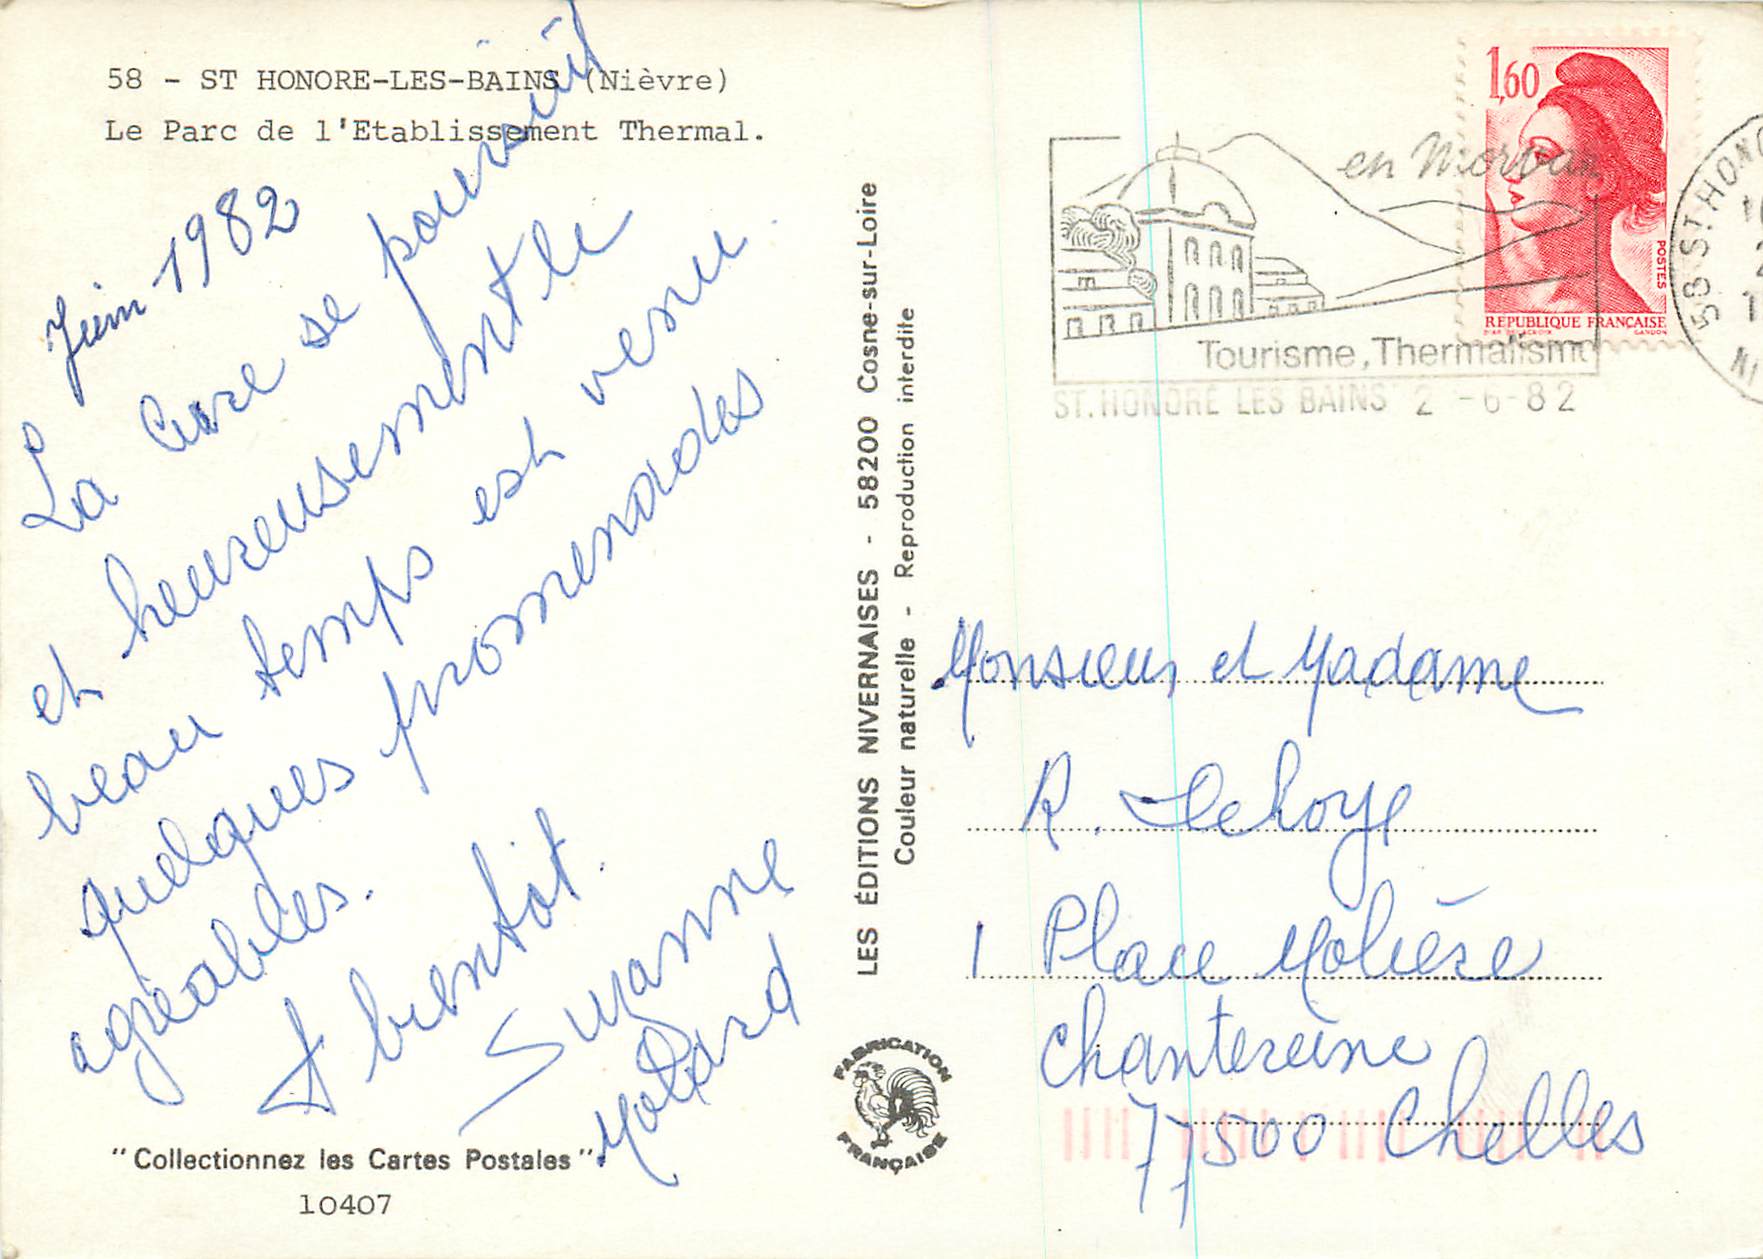 58 - ST HONORE-LES-BAINS (Nièvre)
Le Parc de l'Etablissement Thermal.
Juin 1982
La Cure se poursuit
et heureusement le
beau temps est venu.
quelques promenades
agréables.
A bientot.
Suzanne
Molard
"Collectionnez les Cartes Postales".
10407
LES ÉDITIONS NIVERNAISES - 58200 Cosne-sur-Loire
Couleur naturelle - Reproduction interdite
FABRICATION
FRANÇAISE
1,60
POSTES
REPUBLIQUE FRANÇAISE
GANDON
en Morvan
Tourisme, Thermalisme
ST. HONORÉ LES BAINS 2 -6-82
58 ST. HONO
Monsieur et Madame
R. Lehoye
1 Place Molière
Chantereine
77500 Chelles